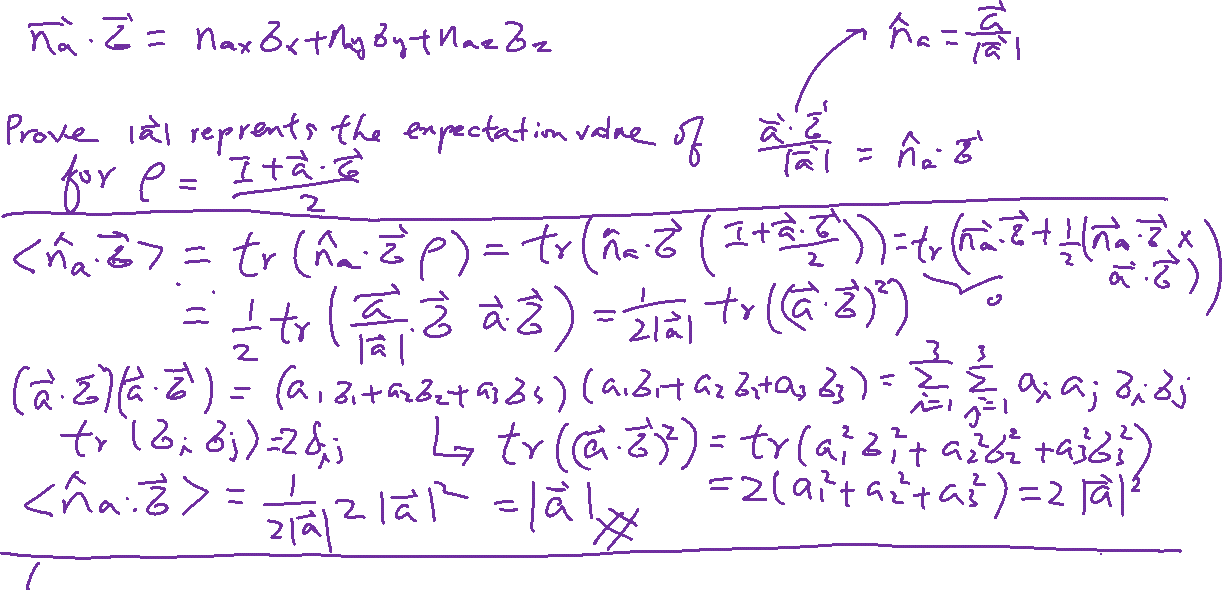 n⃗a · σ⃗ = nax σx + ny σy + naz σz
n̂a = a⃗ / |a⃗|
Prove |a⃗| reprents the expectation value of (a⃗ · σ⃗)/|a⃗| = n̂a · σ⃗
for ρ = (I + a⃗ · σ⃗)/2
<n̂a · σ⃗> = tr(n̂a · σ⃗ ρ) = tr(n̂a · σ⃗ ((I + a⃗ · σ⃗)/2)) = tr(n⃗a · σ⃗ + 1/2 (n⃗a · σ⃗ × a⃗ · σ⃗))
0
= 1/2 tr(a⃗/|a⃗| · σ⃗ a⃗ · σ⃗) = 1/(2|a⃗|) tr((a⃗ · σ⃗)²)
(a⃗ · σ⃗)(a⃗ · σ⃗) = (a1 σ1 + a2 σ2 + a3 σ3)(a1 σ1 + a2 σ2 + a3 σ3) = Σ_{i=1}^{3} Σ_{j=1}^{3} ai aj σi σj
tr(σi σj) = 2δij ↳ tr((a⃗ · σ⃗)²) = tr(a1² σ1² + a2² σ2² + a3² σ3²)
= 2(a1² + a2² + a3²) = 2 |a⃗|²
<n̂a · σ⃗> = 1/(2|a⃗|) 2 |a⃗|² = |a⃗|